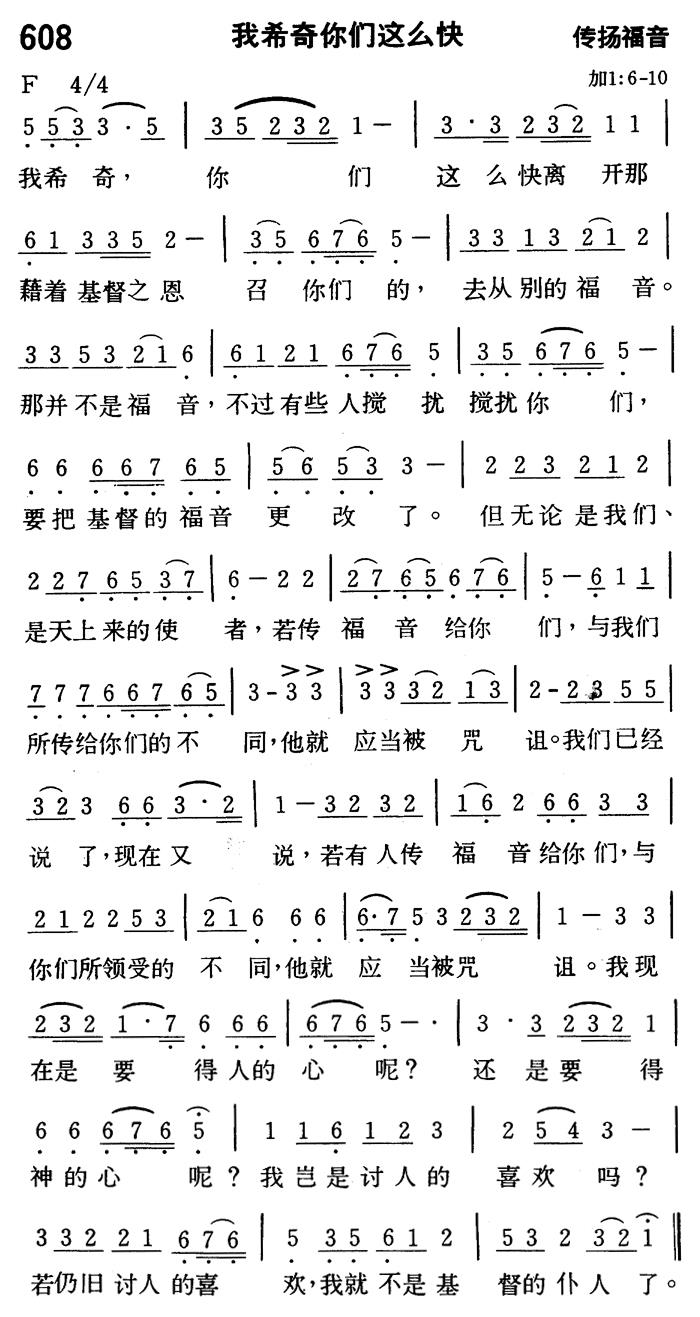 608 我希奇你们这么快 传扬福音
F 4/4 加1:6-10
5 5 3 3 · 5 | 3 5 2 3 2 1 — | 3 · 3 2 3 2 1 1 |
我希奇，你们这么快离开那
6 1 3 3 5 2 — | 3 5 6 7 6 5 — | 3 3 1 3 2 1 2 |
藉着基督之恩召你们的，去从别的福音。
3 3 5 3 2 1 6 | 6 1 2 1 6 7 6 5 | 3 5 6 7 6 5 — |
那并不是福音，不过有些人搅扰搅扰你们，
6 6 6 6 7 6 5 | 5 6 5 3 3 — | 2 2 3 2 1 2 |
要把基督的福音更改了。但无论是我们、
2 2 7 6 5 3 7 | 6 — 2 2 | 2 7 6 5 6 7 6 | 5 — 6 1 1 |
是天上来的使者，若传福音给你们，与我们
7 7 7 6 6 7 6 5 | 3 - 3 3 | 3 3 3 2 1 3 | 2 - 2 3 5 5 |
所传给你们的不同，他就应当被咒诅。我们已经
3 2 3 6 6 3 · 2 | 1 — 3 2 3 2 | 1 6 2 6 6 3 3 |
说了，现在又说，若有人传福音给你们，与
2 1 2 2 5 3 | 2 1 6 6 6 | 6 · 7 5 3 2 3 2 | 1 — 3 3 |
你们所领受的不同，他就应当被咒诅。我现
2 3 2 1 · 7 6 6 6 | 6 7 6 5 — · | 3 · 3 2 3 2 1 |
在是要得人的心呢？还是要得
6 6 6 7 6 5 | 1 1 6 1 2 3 | 2 5 4 3 — |
神的心呢？我岂是讨人的喜欢吗？
3 3 2 2 1 6 7 6 | 5 3 5 6 1 2 | 5 3 2 3 2 1 ‖
若仍旧讨人的喜欢，我就不是基督的仆人了。